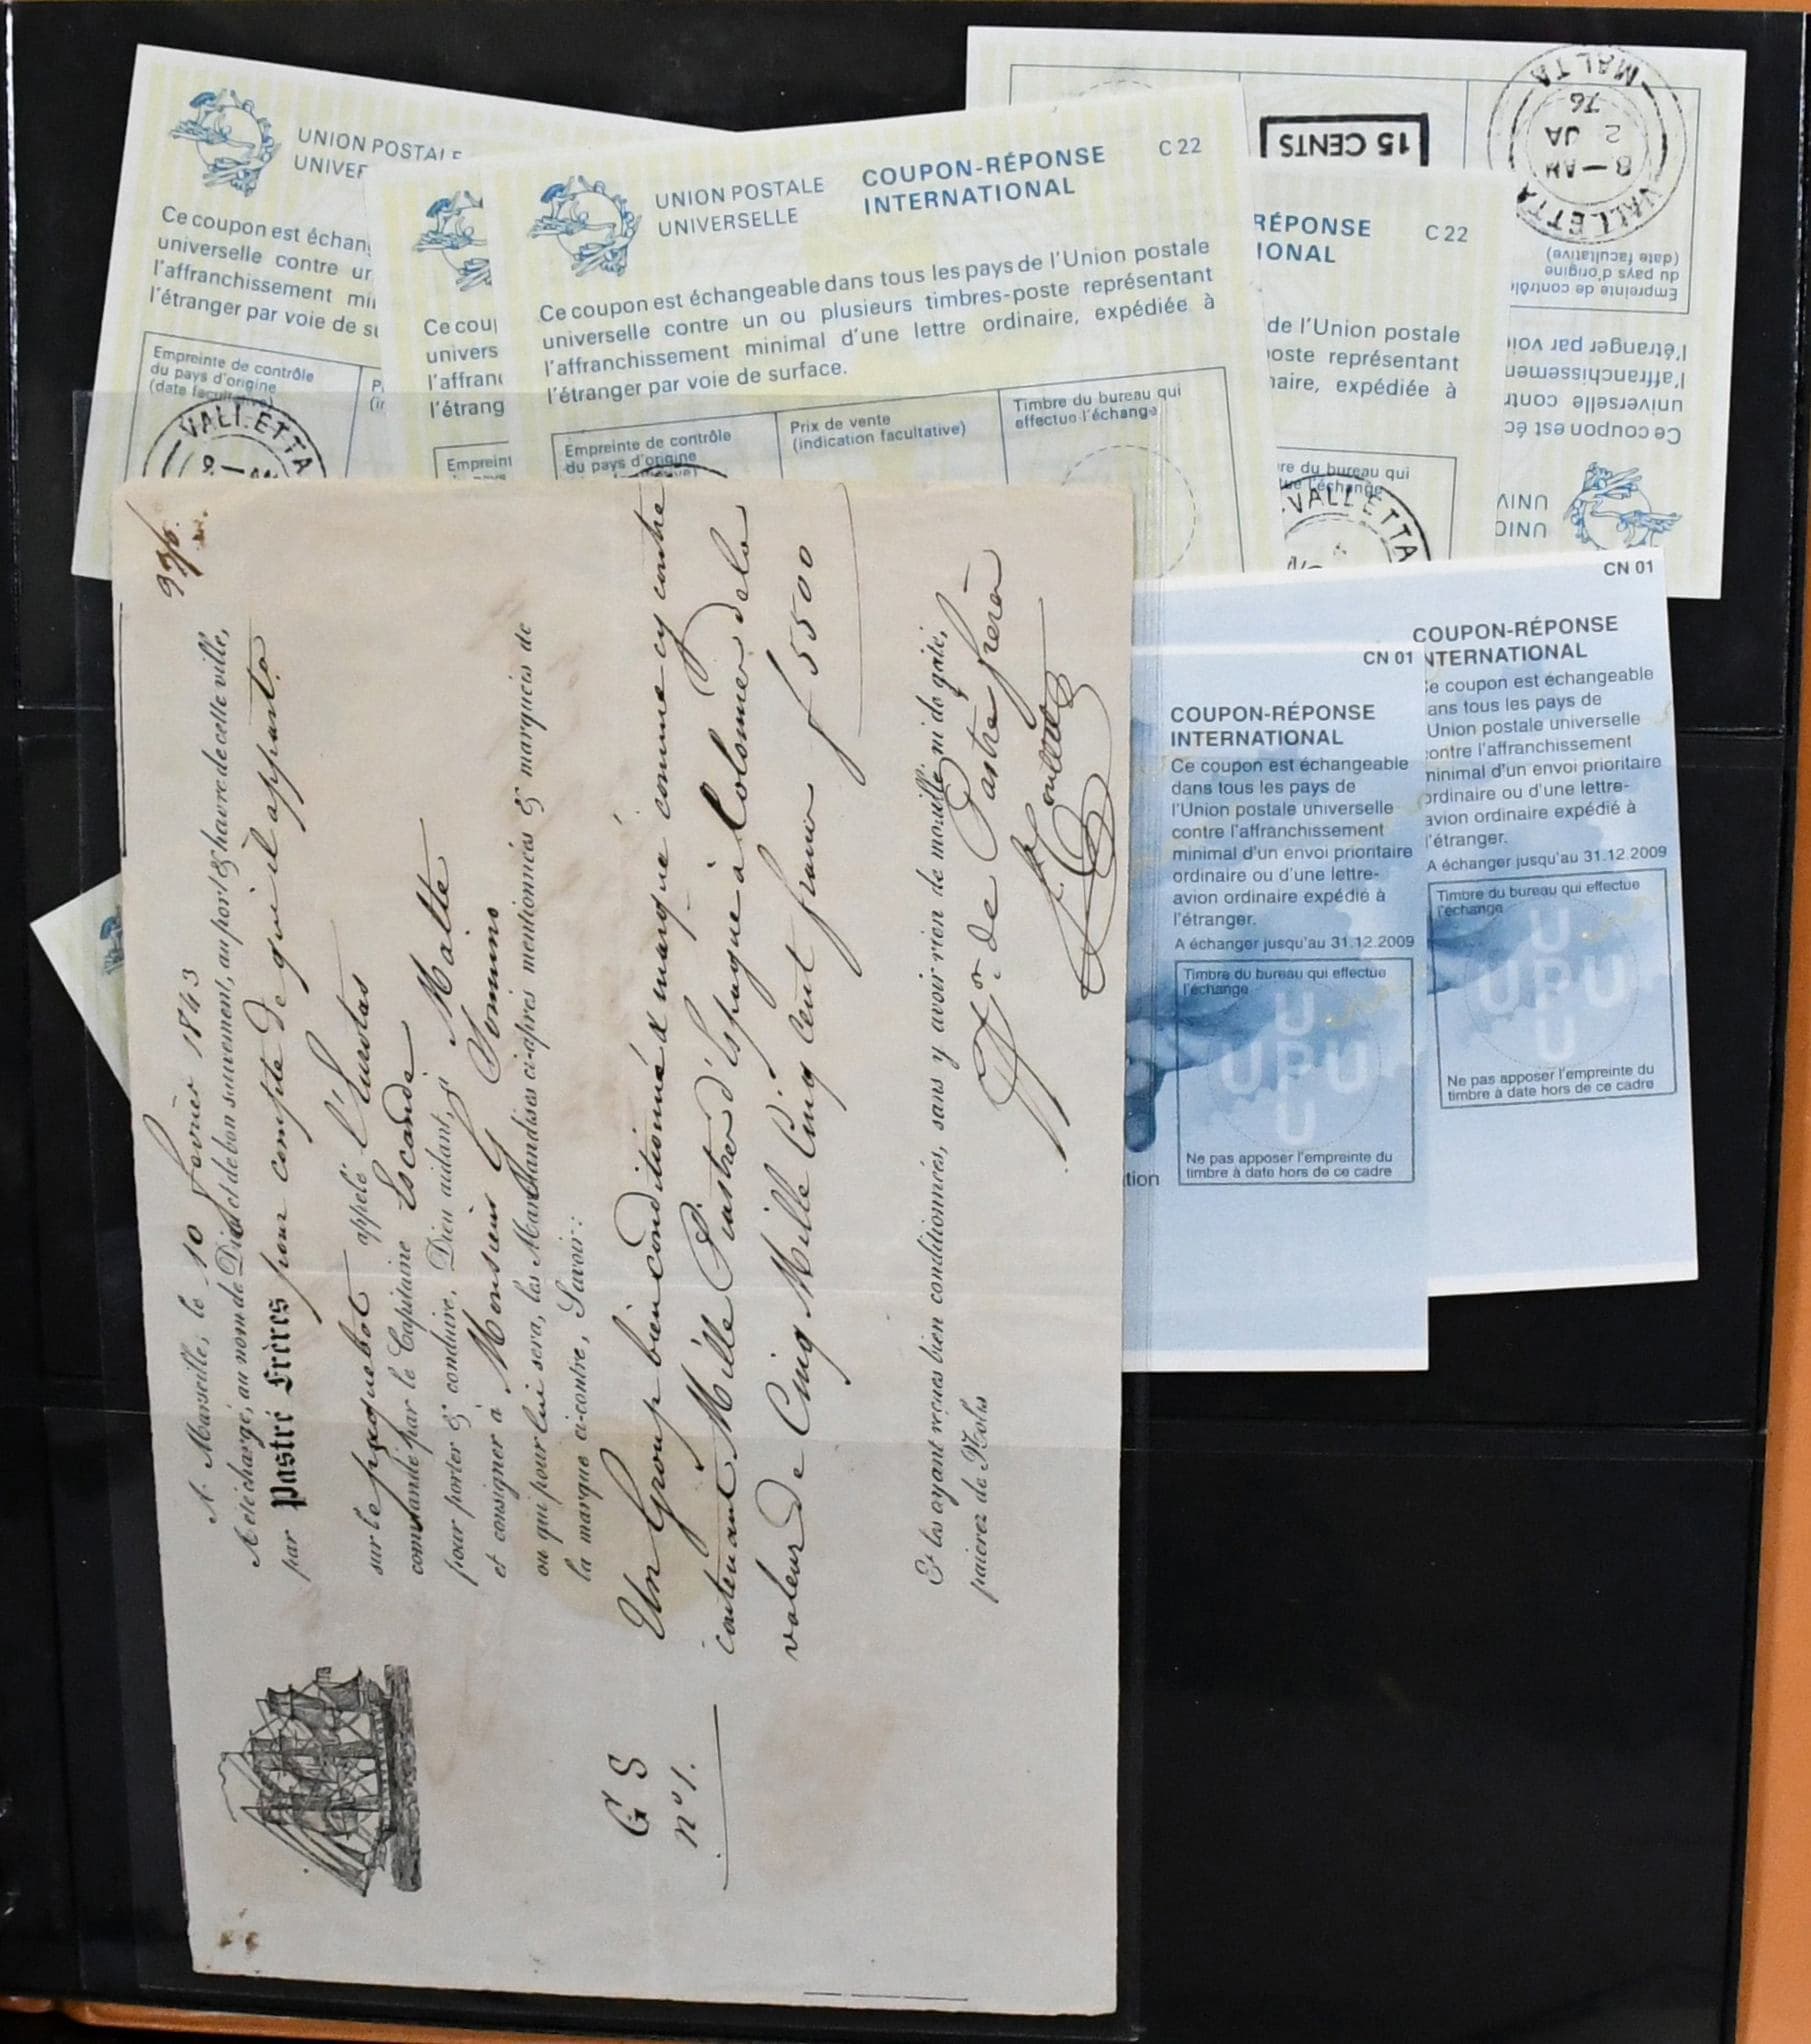 UNION POSTALE
UNIVER
Ce coupon est échan
universelle contre un
l'affranchissement mi
l'étranger par voie de su
Empreinte de contrôle
du pays d'origine
(date facultative)
VALLETTA
Ce cou
univers
l'affran
l'étrang
Empreint
UNION POSTALE
UNIVERSELLE
COUPON-RÉPONSE
INTERNATIONAL
C 22
Ce coupon est échangeable dans tous les pays de l'Union postale
universelle contre un ou plusieurs timbres-poste représentant
l'affranchissement minimal d'une lettre ordinaire, expédiée à
l'étranger par voie de surface.
Empreinte de contrôle
du pays d'origine
Prix de vente
(indication facultative)
Timbre du bureau qui
effectue l'échange
RÉPONSE
IONAL
C 22
de l'Union postale
oste représentant
naire, expédiée à
re du bureau qui
l'échange
VALLETTA
15 CENTS
VALLETTA
8-AM
2 JA
76
MALTA
Empreinte de contrôle
du pays d'origine
(date facultative)
l'étranger par voi
l'affranchissemen
universelle contr
Ce coupon est éc
UNIV
UNIO
CN 01
COUPON-RÉPONSE
INTERNATIONAL
Ce coupon est échangeable
dans tous les pays de
l'Union postale universelle
contre l'affranchissement
minimal d'un envoi prioritaire
ordinaire ou d'une lettre-
avion ordinaire expédié à
l'étranger.
A échanger jusqu'au 31.12.2009
Timbre du bureau qui effectue
l'échange
UPU
Ne pas apposer l'empreinte du
timbre à date hors de ce cadre
tion
CN 01
COUPON-RÉPONSE
NTERNATIONAL
e coupon est échangeable
ans tous les pays de
Union postale universelle
ontre l'affranchissement
minimal d'un envoi prioritaire
ordinaire ou d'une lettre-
avion ordinaire expédié à
l'étranger.
A échanger jusqu'au 31.12.2009
Timbre du bureau qui effectue
l'échange
UPU
Ne pas apposer l'empreinte du
timbre à date hors de ce cadre
A Marseille, le 10 Février 1843
A été chargé, au nom de Dieu et de bon sauvement, au port & havre de cette ville,
par Pastré Frères pour compte de qui il appart.
sur le paquebot appelé l'Eurotas
commandé par le Capitaine Escande
pour porter & conduire, Dieu aidant, à Malte
et consigner à Monsieur G
ou qui pour lui sera, les Marchandises ci-après mentionnées & marquées de
la marque ci-contre, Savoir:
G S
n° 1.
Un Group bien conditionné & marqué comme cy contre
contenant Mille Piastres d'Espagne à Colonnes de la
valeur de Cinq Mille Cinq Cent francs f 5500
Et les ayant reçues bien conditionnées, sans y avoir rien de mouillé ni de gâté,
paierez de Nolis
de Pastré frères